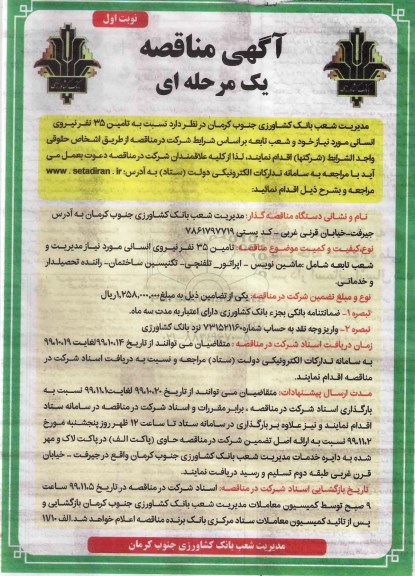 نوبت اول
آگهی مناقصه
یک مرحله ای
مدیریت شعب بانک کشاورزی جنوب کرمان در نظر دارد نسبت به تامین ۳۵ نفر نیروی
انسانی مورد نیاز خود و شعب تابعه بر اساس شرایط شرکت در مناقصه از طریق اشخاص حقوقی
واجد الشرایط (شرکتها) اقدام نمایند، لذا از کلیه علاقمندان شرکت در مناقصه دعوت بعمل می
آید با مراجعه به سامانه تدارکات الکترونیکی دولت (ستاد) به آدرس: www . setadiran . ir
مراجعه و بشرح ذیل اقدام نمائید:
نام و نشانی دستگاه مناقصه گذار: مدیریت شعب بانک کشاورزی جنوب کرمان به آدرس
جیرفت-خیابان قرنی غربی - کد پستی ۷۸۶۱۷۹۷۷۱۹
نوع،کیفیت و کمیت موضوع مناقصه: تامین ۳۵ نفر نیروی انسانی مورد نیاز مدیریت و
شعب تابعه شامل :ماشین نویس - اپراتور_ تلفنچی- تکنیسین ساختمان- راننده تحصیلدار
و خدماتی.
نوع و مبلغ تضمین شرکت در مناقصه: یکی از تضامین ذیل به مبلغ ۱,۲۵۸,۰۰۰,۰۰۰ ریال
تبصره ۱- ضمانتنامه بانکی بجزء بانک کشاورزی دارای اعتبار به مدت سه ماه.
تبصره ۲- واریز وجه نقد به حساب شماره ۷۳۱۵۲۱۱۶۰ نزد بانک کشاورزی
زمان دریافت اسناد شرکت در مناقصه : متقاضیان می توانند از تاریخ ۹۹.۱۰.۱۴ لغایت ۹۹.۱۰.۱۹
به سامانه تدارکات الکترونیکی دولت (ستاد) مراجعه و نسبت به دریافت اسناد شرکت در
مناقصه اقدام نمایند.
مدت ارسال پیشنهادات: متقاضیان می توانند از تاریخ ۹۹.۱۰.۲۰ لغایت ۹۹.۱۱.۱ نسبت به
بارگذاری اسناد شرکت در مناقصه ، برابر مقررات و اسناد شرکت در مناقصه در سامانه ستاد
اقدام نمایند و نیز علاوه بر بارگذاری در سامانه ستاد تا ساعت ۱۲ ظهر روز پنجشنبه مورخ
۹۹.۱۱.۲ نسبت به ارائه اصل تضمین شرکت در مناقصه حاوی (پاکت الف) در پاکت لاک و مهر
شده به دایره خدمات مدیریت شعب بانک کشاورزی جنوب کرمان واقع در جیرفت - خیابان
قرن غربی طبقه دوم تسلیم و رسید دریافت نمایند.
تاریخ بازگشایی اسناد شرکت در مناقصه: اسناد شرکت در مناقصه در تاریخ ۹۹.۱۱.۵ ساعت
۹ صبح توسط کمیسیون معاملات مدیریت شعب بانک کشاورزی جنوب کرمان بازگشایی و
پس از تائید کمیسیون معاملات ستاد مرکزی بانک برنده مناقصه اعلام خواهد شد.الف ۱۱/۱۰
مدیریت شعب بانک کشاورزی جنوب کرمان